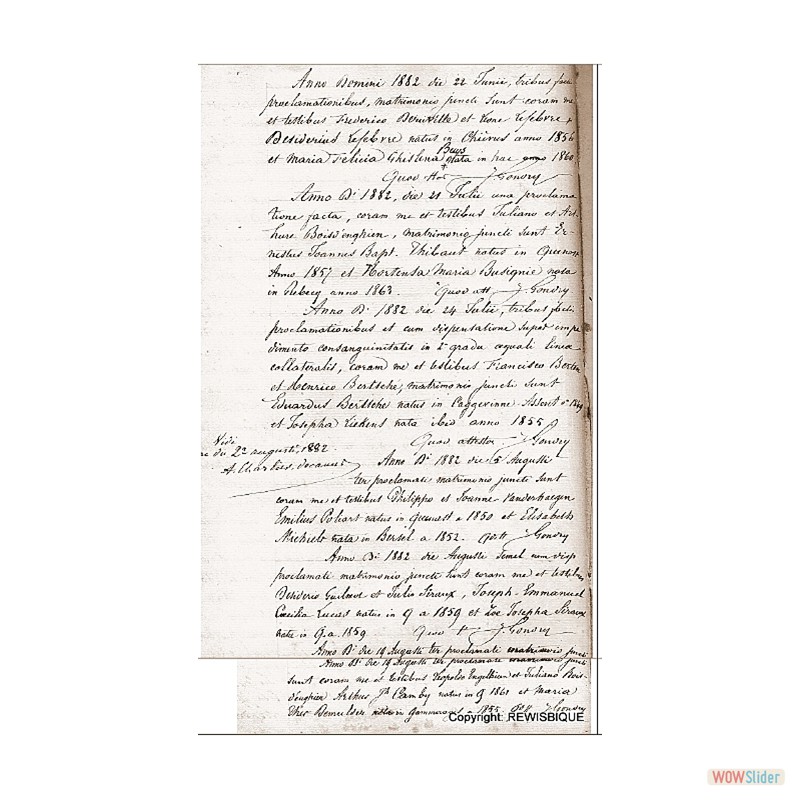 Anno Domini 1882 die 22 Junii, tribus
proclamationibus, matrimonio juncti sunt coram me
et testibus Frederico et Leone Lefebvre
Desiderius Lefebvre natus in Chièvres anno 1856
et Maria Felicia Ghislina Buys nata in hac anno 1860
Quod J. Gondry
Anno Di 1882, die 21 Julii una proclama
tione facta, coram me et testibus Juliano et Art
hure Boisd'enghien, matrimonio juncti sunt Er-
nestus Joannes Bapt. Thibaut natus in Quenast
Anno 1857 et Hortensa Maria Busignie nata
in Rebecq anno 1863. Quod att J. Gondry
Anno Di 1882 die 24 Julii, tribus factis
proclamationibus et cum dispensatione super impe
dimento consanguinitatis in gradu æquali linea
collateralis, coram me et testibus Francisco
et Henrico Bertsche, matrimonio juncti sunt
Eduardus Bertsche natus in Caggevinne-Assent
et Josepha nata ibid anno 1855
Quod attestor J. Gondry
Vidi
du 2a augusti, 1882.
A. Charlier, decanus
Anno Di 1882 die 5 Augusti
ter proclamati matrimonio juncti sunt
coram me et testibus Philippo et Joanne Vanderhaegen
Emilius Poliart natus in Quenast a 1850 et Elisabeth
Michiels nata in Bersel a 1852. J. Gondry
Anno Di 1882 die Augusti semel cum disp
proclamati matrimonio juncti sunt coram me et testibus
Desiderio et Julio Siraux, Joseph-Emmanuel
Lucas natus in Q a 1859 et Zoe Josepha Siraux
nata in Q. a. 1859 Quod J. Gondry
Anno Di die 19 Augusti ter proclamati matrimonio juncti
Anno Di die 19 Augusti ter proclamati matrimonio juncti
sunt coram me et testibus Leopoldo Enghien et Juliano Bois-
d'enghien Arthur Jh Camby natus in Q 1861 et Maria
Demulder nata in 1855. J. Gondry
Copyright: REWISBIQUE
WOWSlider